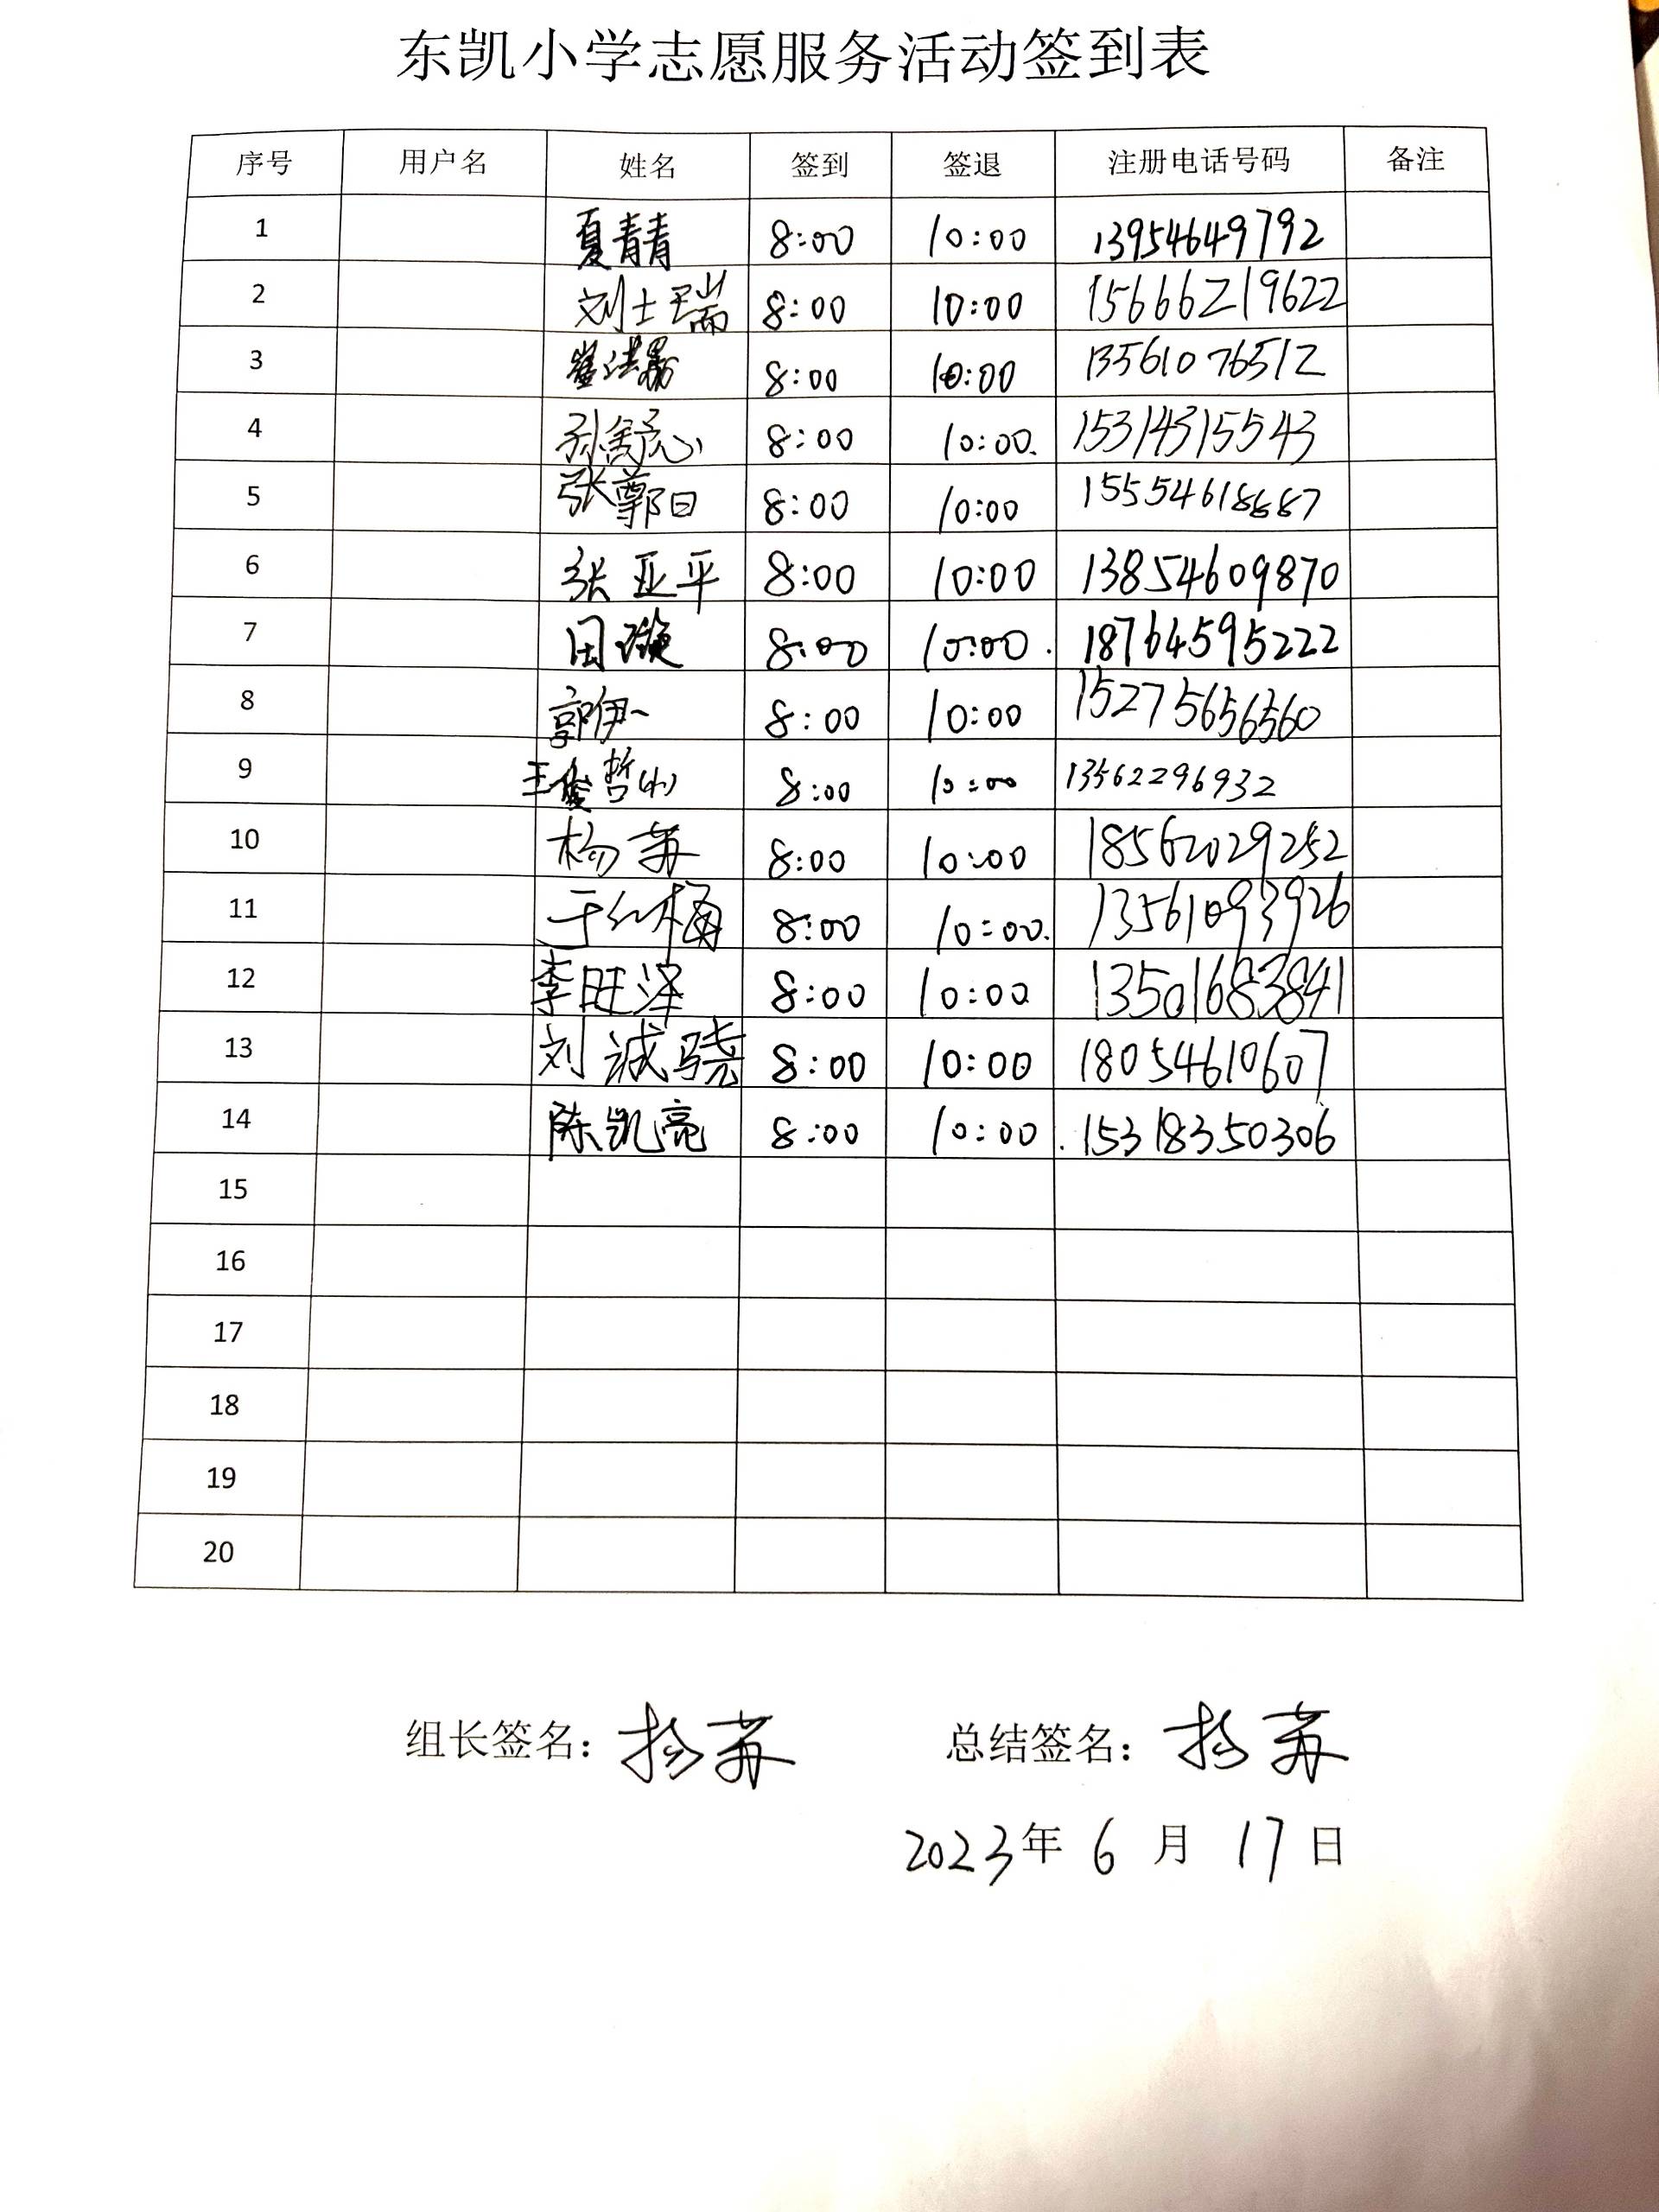 东凯小学志愿服务活动签到表
序号 用户名 姓名 签到 签退 注册电话号码 备注
1 夏青青 8:00 10:00 13954649792
2 刘士瑞 8:00 10:00 15666219622
3 8:00 10:00 13561076512
4 孙舒心 8:00 10:00. 15314315543
5 张郭日 8:00 10:00 15554618687
6 张亚平 8:00 10:00 13854609870
7 田璇 8:00 10:00. 18764595222
8 郭伊一 8:00 10:00 15275656560
9 王俊哲(小) 8:00 10:00 13562296932
10 杨苏 8:00 10:00 18562029252
11 于红梅 8:00 10:00. 13561093926
12 李旺泽 8:00 10:00 13501683841
13 刘诚骁 8:00 10:00 18054610607
14 陈凯亮 8:00 10:00. 15318350306
15
16
17
18
19
20
组长签名：杨苏 总结签名：杨苏
2023年 6 月 17日